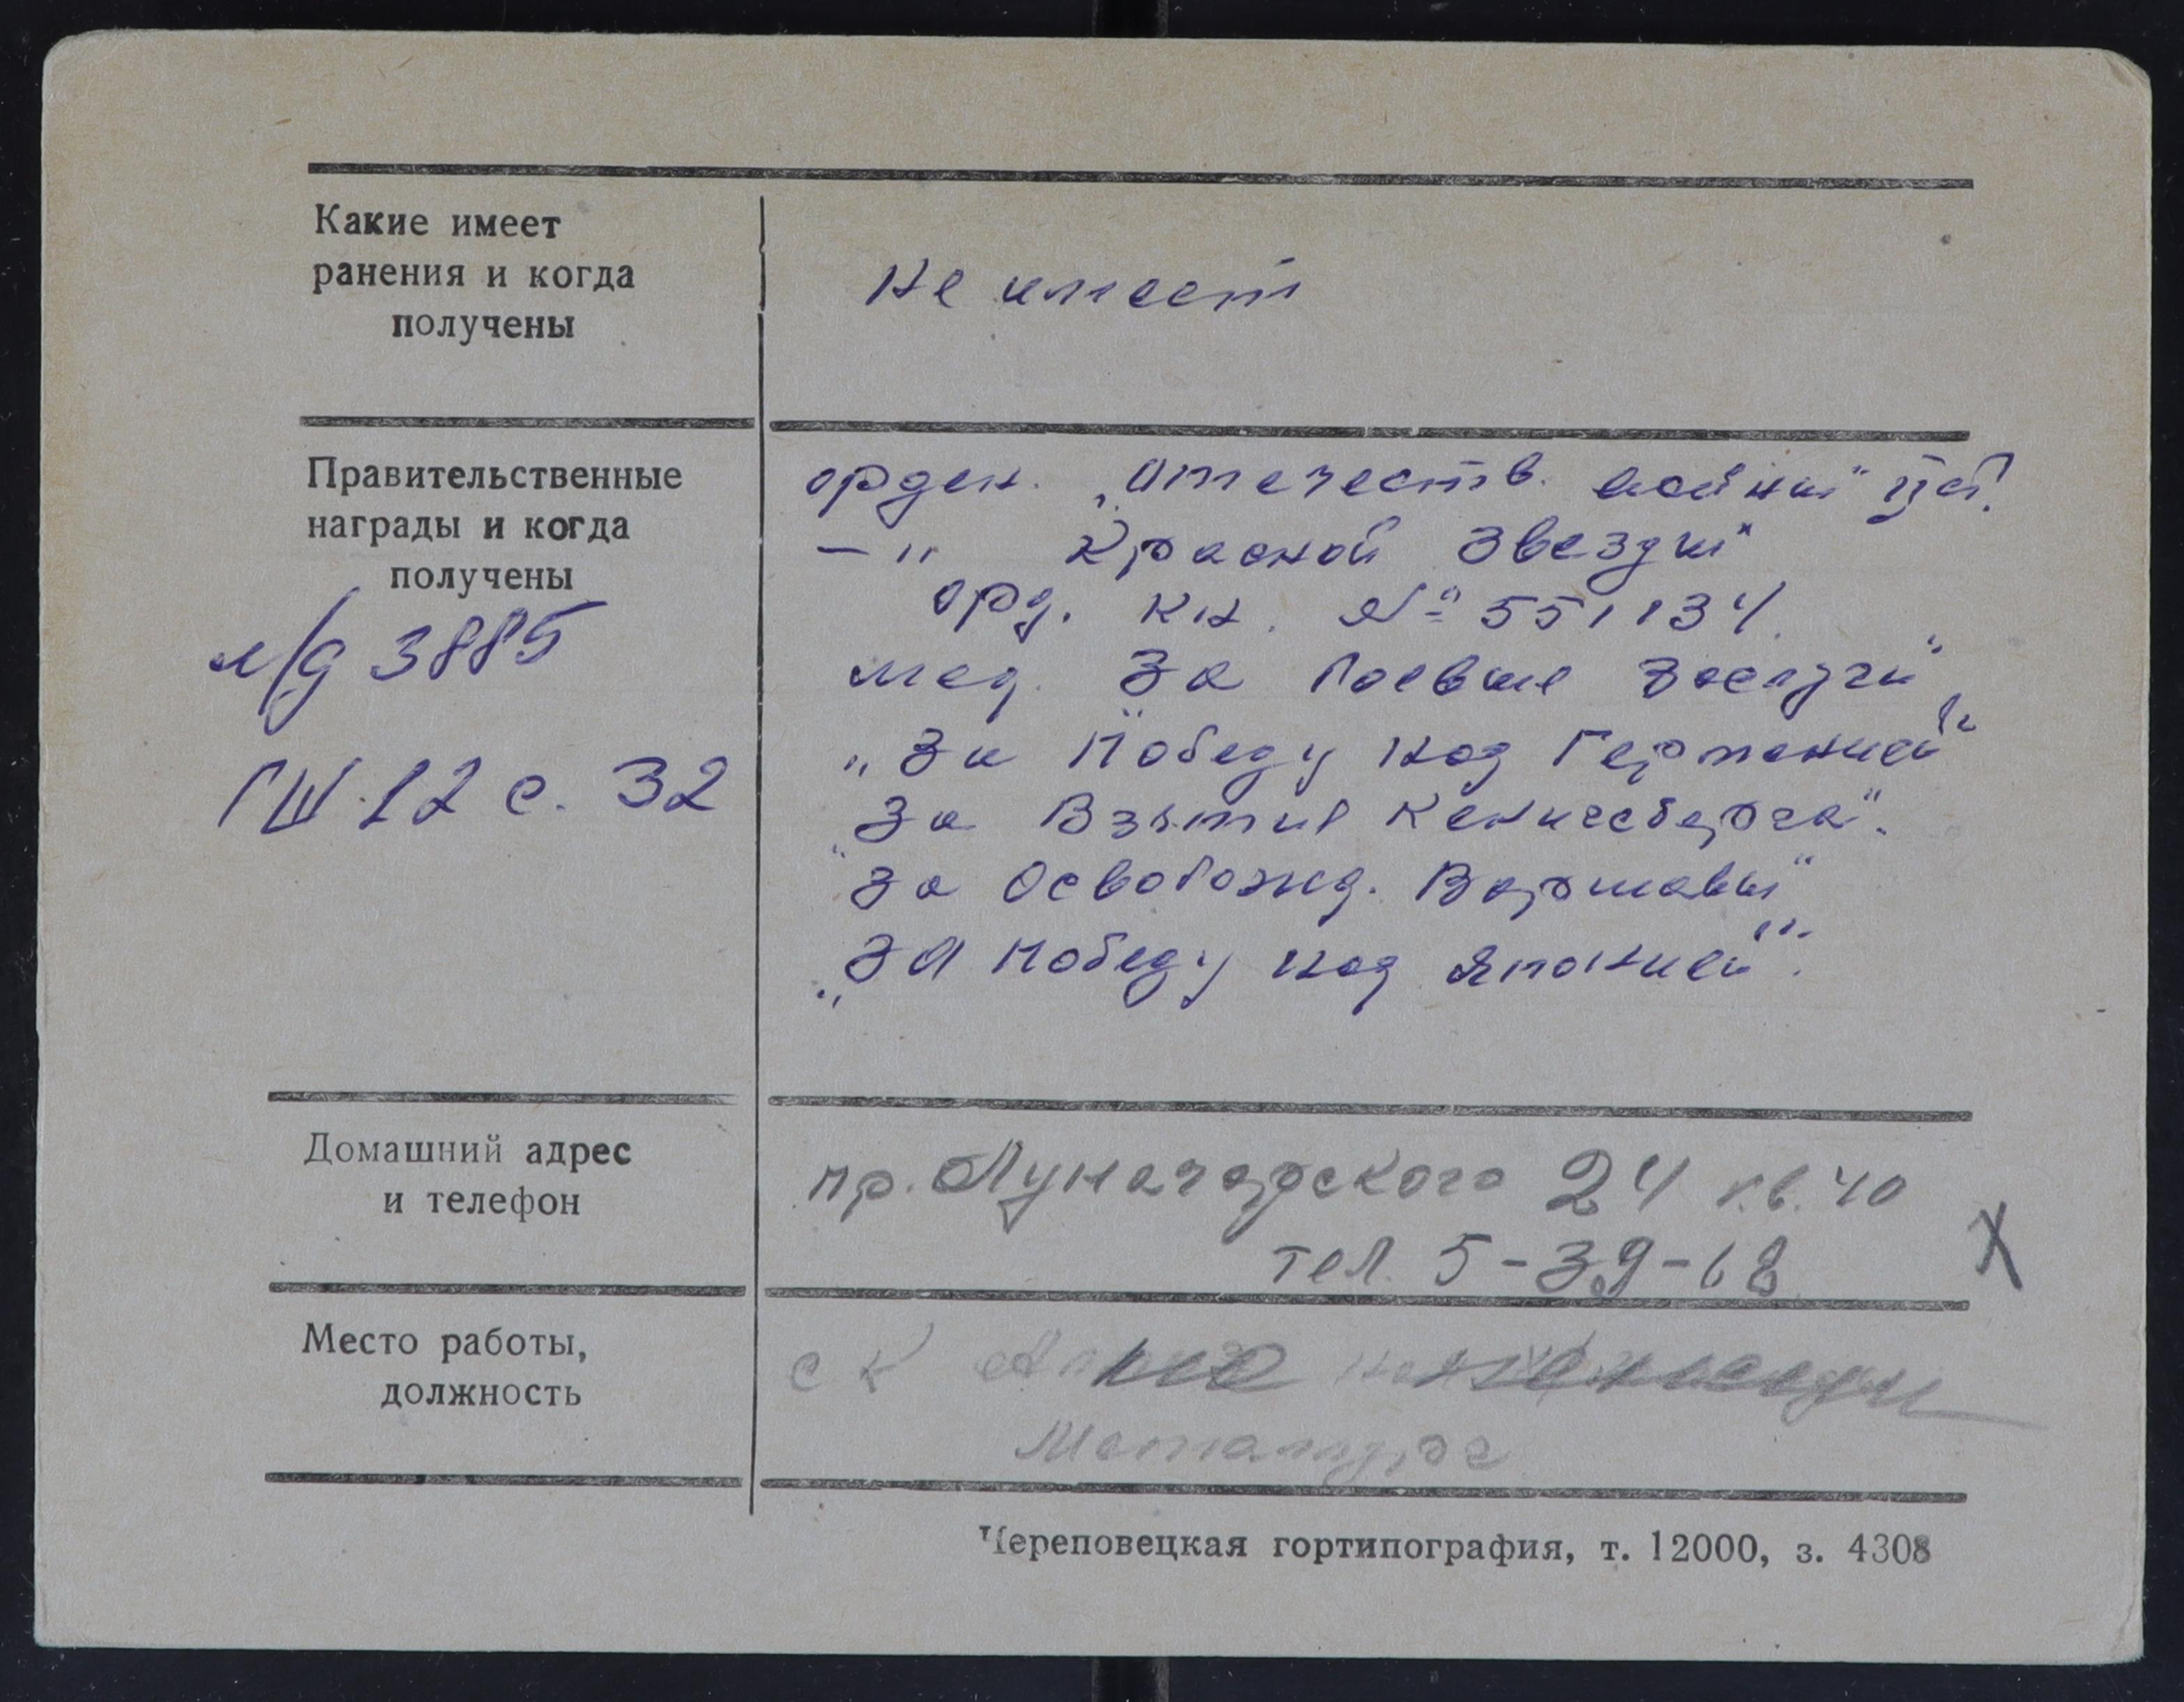 Какие имеет
ранения и когда
получены
не имеет
Правительственные
награды и когда
получены
л/д 3885
ГШ 12 с. 32
орден „Отечеств. войны" II ст.
— „ Красной Звезды"
орд. кн. № 551134.
мед. „За боевые заслуги"
„За Победу над Германией"
„За Взятие Кенигсберга".
„За Освобожд. Варшавы"
„За победу над Японией".
Домашний адрес
и телефон
пр. Луначарского 24 кв. 40
тел. 5-39-68
X
Место работы,
должность
с К
Металлург
Череповецкая гортипография, т. 12000, з. 4308